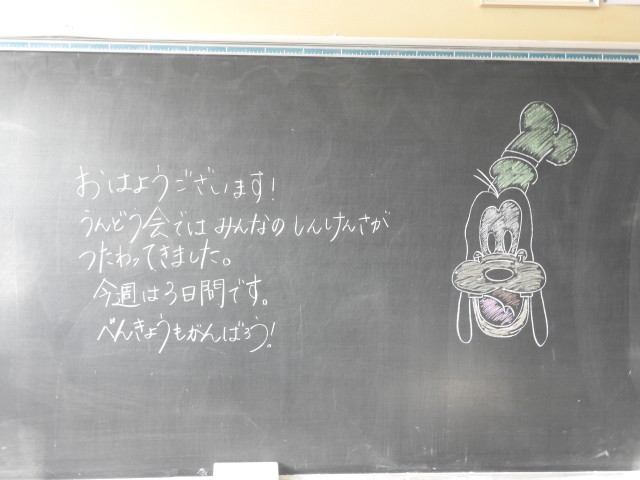 おはようございます!
うんどう会では みんなの しんけんさが
つたわってきました。
今週は3日間です。
べんきょうもがんばろう!